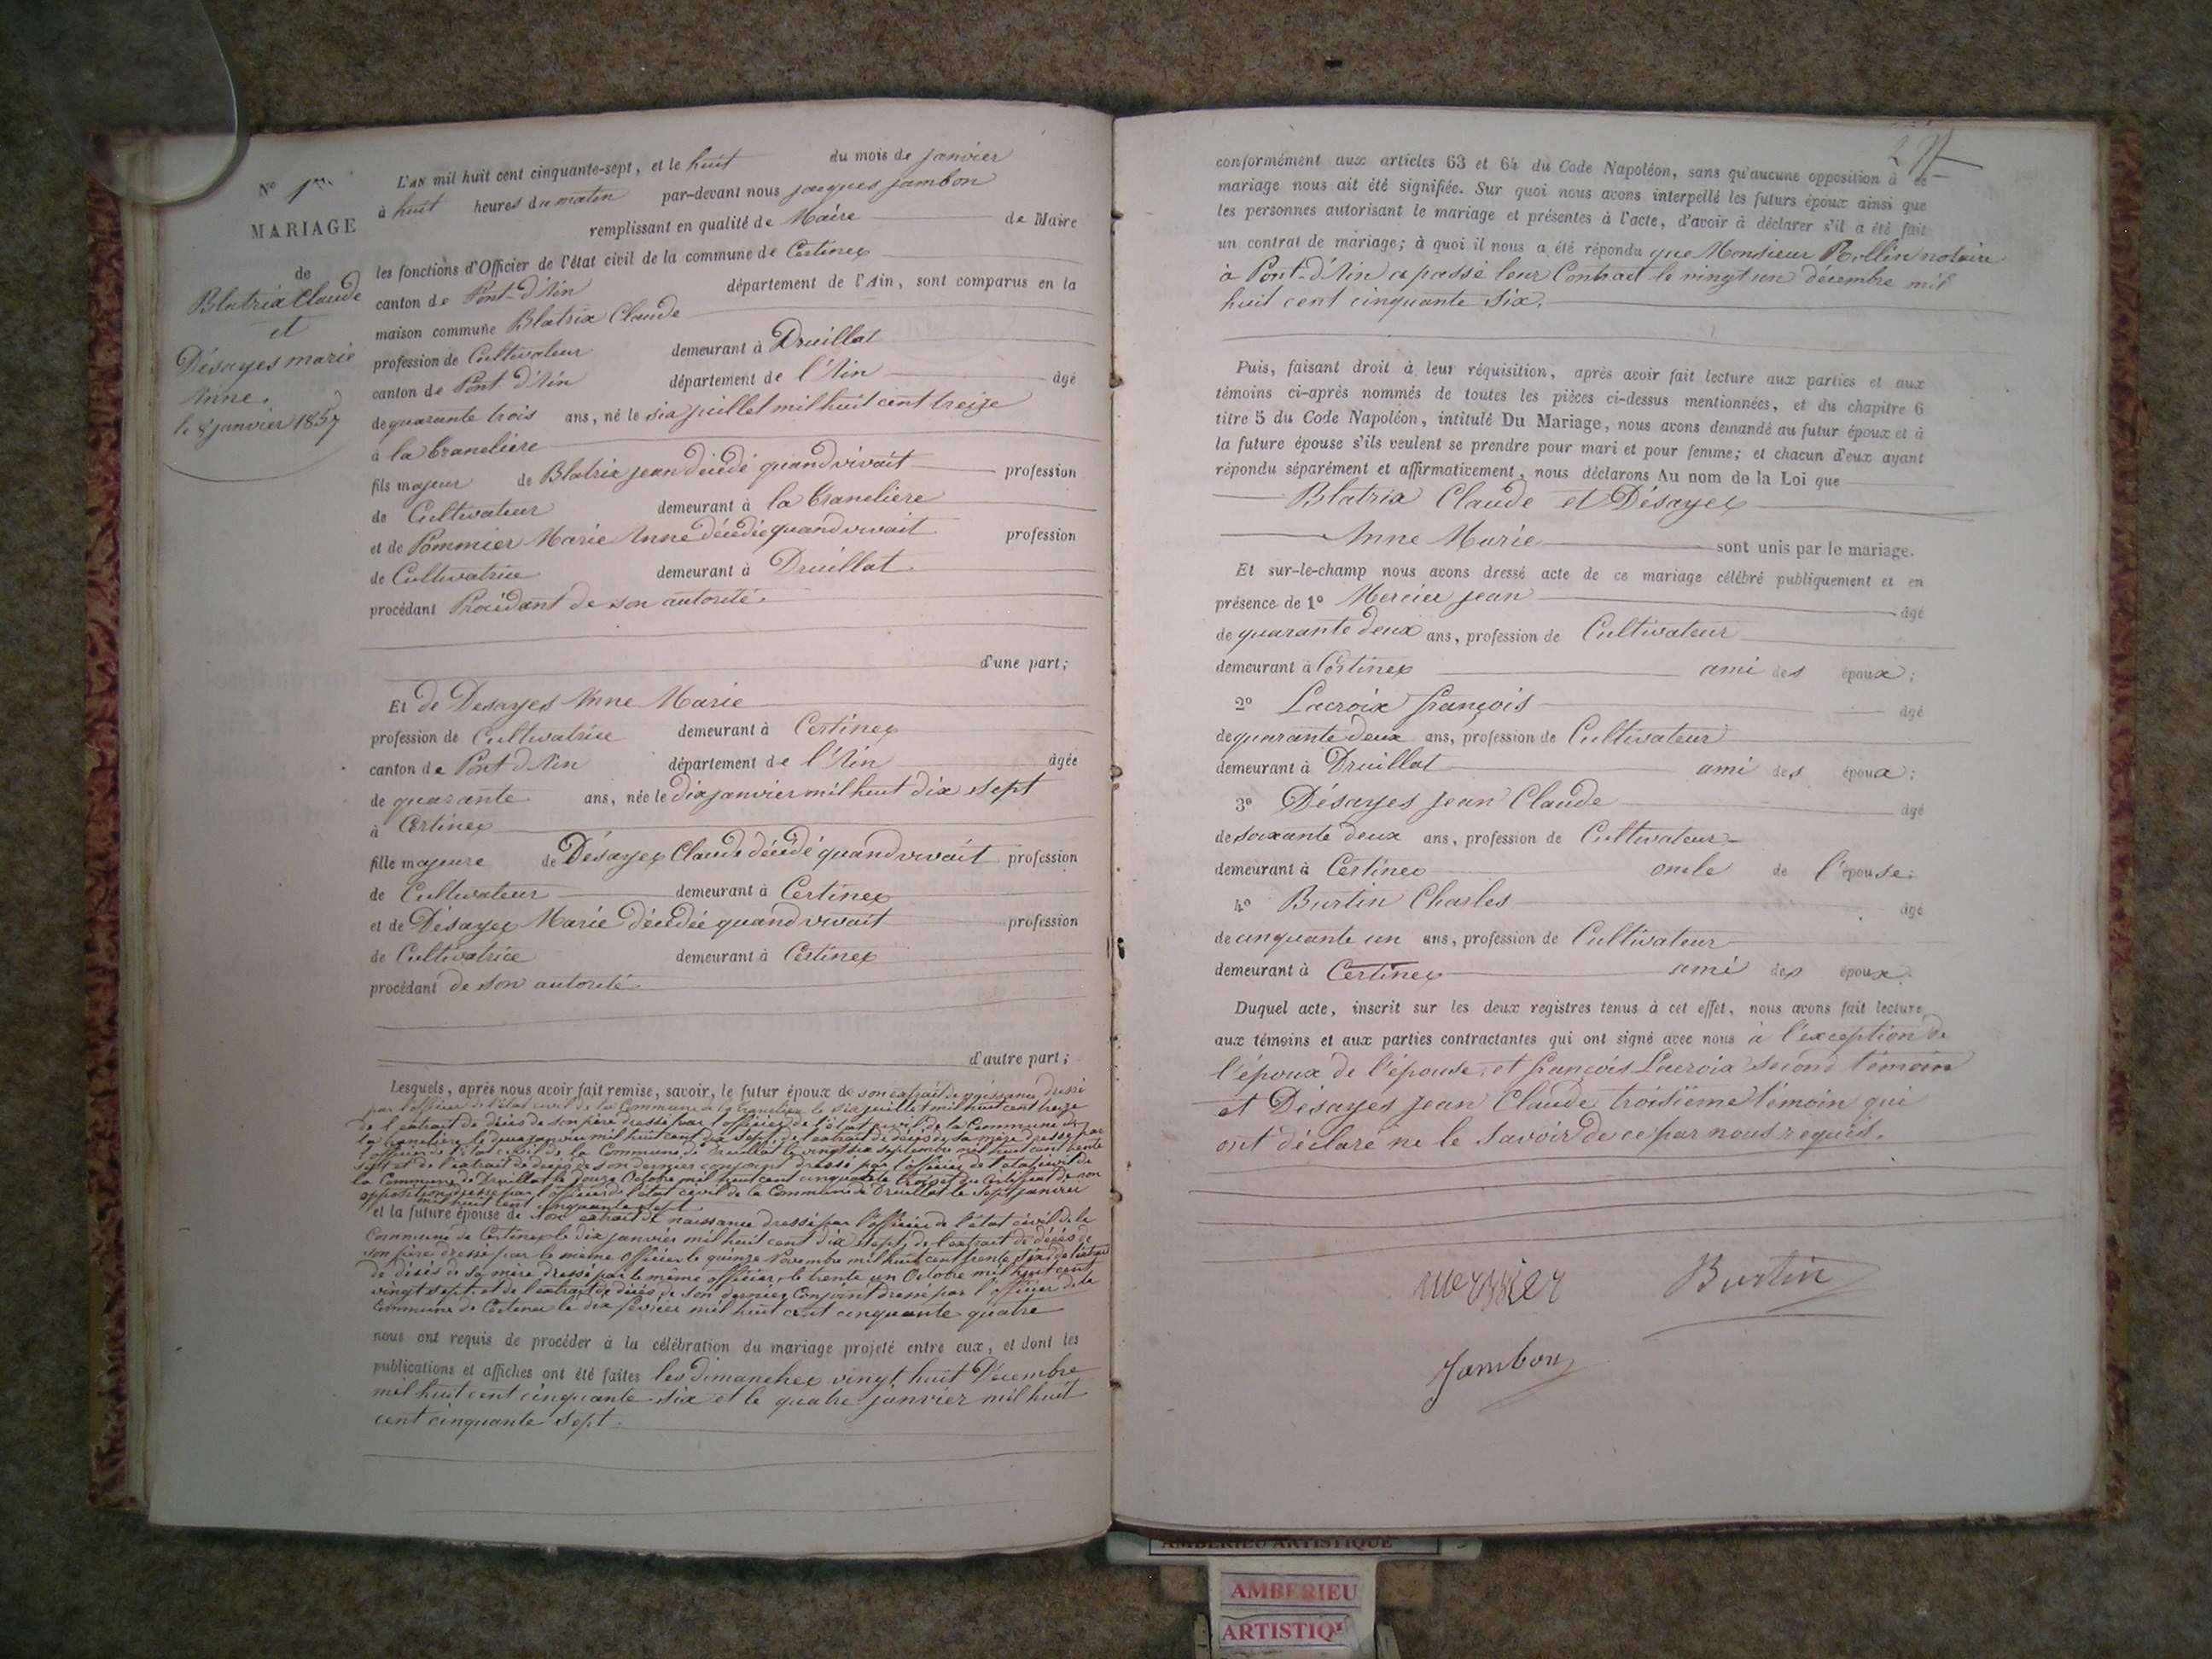 N° 1er
MARIAGE
de
Blatrix Claude
et
Désayes marie
Anne.
le 8 janvier 1857
L'an mil huit cent cinquante-sept, et le huit du mois de janvier
à huit heures du matin par-devant nous jacques jambon
remplissant en qualité de Maire de Maire
les fonctions d'Officier de l'état civil de la commune de Certines
canton de Pont-d'Ain département de l'Ain, sont comparus en la
maison commune Blatrix Claude
profession de Cultivateur demeurant à Druillat
canton de Pont d'Ain département de l'Ain âgé
de quarante trois ans, né le six juillet mil huit cent treize
à la tranclière
fils majeur de Blatrix jean décédé quand vivait profession
de Cultivateur demeurant à la tranclière
et de Pommier Marie Anne décédée quand vivait profession
de Cultivatrice demeurant à Druillat
procédant Procédant de son autorité.
d'une part;
Et de Desayes Anne Marie
profession de Cultivatrice demeurant à Certines
canton de Pont d'Ain département de l'Ain âgée
de quarante ans, née le dix janvier mil huit dix sept
à Certines
fille majeure de Désayes Claude décédé quand vivait profession
de Cultivateur demeurant à Certines
et de Désayes Marie décédée quand vivait profession
de Cultivatrice demeurant à Certines
procédant de son autorité
d'autre part;
Lesquels, après nous avoir fait remise, savoir, le futur époux de son extrait de naissance dressé
par l'officier de l'état civil de la Commune de la tranclière le six juillet mil huit cent treize
de l'extrait de décès de son père dressé par l'officier de l'état civil de la Commune de
la tranclière le janvier mil huit cent dix sept, de l'extrait de décès de sa mère dressé par
l'officier de l'état civil de la Commune de Druillat le vingt six septembre mil huit cent trente
sept et de l'extrait de décès de son dernier conjoint dressé par l'officier de l'état civil de
la Commune de Druillat le douze Octobre mil huit cent cinquante trois et du Certificat de non
opposition dressé par l'officier de l'état civil de la Commune de Druillat le sept janvier
mil huit cent cinquante sept
et la future épouse de son extrait de naissance dressé par l'officier de l'état civil de la
Commune de Certines le dix janvier mil huit cent dix sept, de l'extrait de décès de
son père dressé par le même Officier le quinze Novembre mil huit cent trente six de l'extrait
de décès de sa mère dressé par le même officier, le trente un Octobre mil huit cent
vingt sept, et de l'extrait de décès de son dernier Conjoint dressé par l'officier de la
Commune de Certines le dix février mil huit cent cinquante quatre
nous ont requis de procéder à la célébration du mariage projeté entre eux, et dont les
publications et affiches ont été faites les dimanches vingt huit Décembre
mil huit cent cinquante six et le quatre janvier mil huit
cent cinquante sept.
conformément aux articles 63 et 64 du Code Napoléon, sans qu'aucune opposition à ce
mariage nous ait été signifiée. Sur quoi nous avons interpellé les futurs époux ainsi que
les personnes autorisant le mariage et présentes à l'acte, d'avoir à déclarer s'il a été fait
un contrat de mariage; à quoi il nous a été répondu que Monsieur Rollin notaire
à Pont-d'Ain a passé leur Contrat le vingt un décembre mil
huit cent cinquante six.
Puis, faisant droit à leur réquisition, après avoir fait lecture aux parties et aux
témoins ci-après nommés de toutes les pièces ci-dessus mentionnées, et du chapitre 6
titre 5 du Code Napoléon, intitulé Du Mariage, nous avons demandé au futur époux et à
la future épouse s'ils veulent se prendre pour mari et pour femme; et chacun d'eux ayant
répondu séparément et affirmativement, nous déclarons Au nom de la Loi que
Blatrix Claude et Désayes
Anne Marie sont unis par le mariage.
Et sur-le-champ nous avons dressé acte de ce mariage célébré publiquement et en
présence de 1° Mercier jean âgé
de quarante deux ans, profession de Cultivateur
demeurant à Certines ami des époux;
2° Lacroix françois âgé
de quarante deux ans, profession de Cultivateur
demeurant à Druillat ami des époux;
3° Désayes jean Claude âgé
de soixante deux ans, profession de Cultivateur
demeurant à Certines oncle de l'épouse;
4° Burtin Charles âgé
de cinquante un ans, profession de Cultivateur
demeurant à Certines ami des époux.
Duquel acte, inscrit sur les deux registres tenus à cet effet, nous avons fait lecture
aux témoins et aux parties contractantes qui ont signé avec nous à l'exception de
l'époux de l'épouse, et françois Lacroix second témoin
et Désayes jean Claude troisième témoin qui
ont déclaré ne le savoir de ce par nous requis.
mercier Burtin
Jambon
AMBERIEU ARTISTIQUE
AMBERIEU
ARTISTIQU